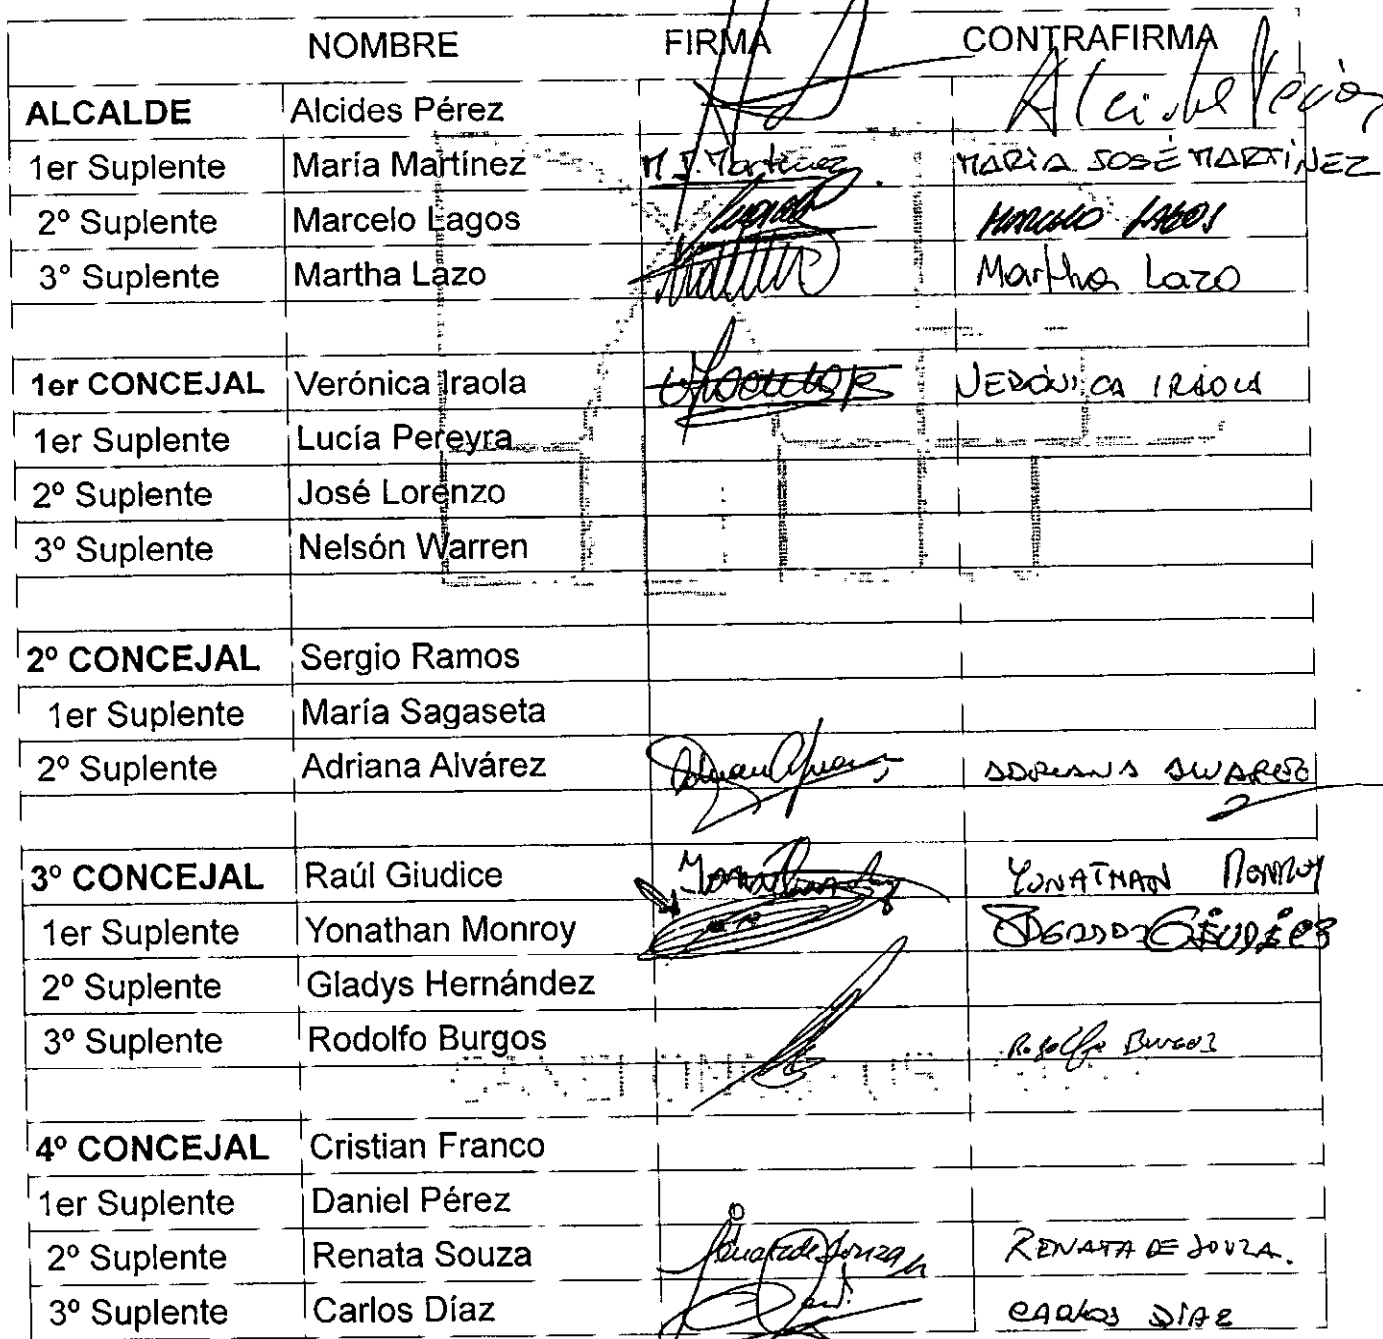 NOMBRE FIRMA CONTRAFIRMA
ALCALDE Alcides Pérez
1er Suplente María Martínez M. J. Martínez MARÍA JOSÉ MARTÍNEZ
2º Suplente Marcelo Lagos MARCELO LAGOS
3° Suplente Martha Lazo Martha Lazo
1er CONCEJAL Verónica Iraola VERÓNICA IRAOLA
1er Suplente Lucía Pereyra
2º Suplente José Lorenzo
3º Suplente Nelsón Warren
2º CONCEJAL Sergio Ramos
1er Suplente María Sagaseta
2º Suplente Adriana Alvárez ADRIANA ALVAREZ
3º CONCEJAL Raúl Giudice YONATHAN MONROY
1er Suplente Yonathan Monroy GIUDICE
2º Suplente Gladys Hernández
3º Suplente Rodolfo Burgos Rodolfo Burgos
4º CONCEJAL Cristian Franco
1er Suplente Daniel Pérez
2º Suplente Renata Souza Renata de Souza RENATA DE SOUZA.
3º Suplente Carlos Díaz CARLOS DÍAZ